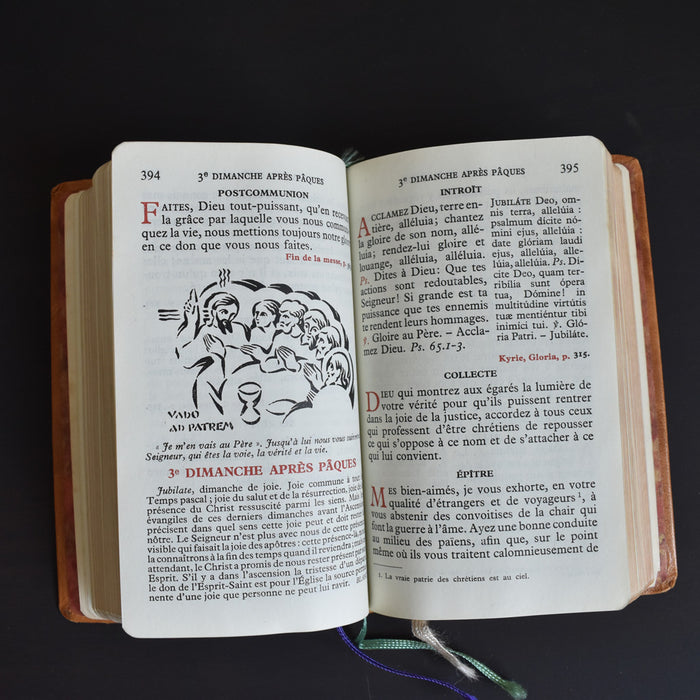 394
3e DIMANCHE APRÈS PÂQUES
POSTCOMMUNION
FAITES, Dieu tout-puissant, qu'en
la grâce par laquelle vous nous
quez la vie, nous mettions toujours notre
en ce don que vous nous faites.
Fin de la messe,
VADO
AD PATREM
« Je m'en vais au Père ». Jusqu'à lui nous vous
Seigneur, qui êtes la voie, la vérité et la vie.
3e DIMANCHE APRÈS PÂQUES
Jubilate, dimanche de joie. Joie commune à
Temps pascal ; joie du salut et de la résurrection, joie de
présence du Christ ressuscité parmi les siens. Mais
évangiles de ces derniers dimanches avant l'Ascension
précisent dans quel sens cette joie peut et doit rester
nôtre. Le Seigneur n'est plus avec nous de cette présence
visible qui faisait la joie des apôtres : cette présence-là, nous
la connaîtrons à la fin des temps quand il reviendra ; mais en
attendant, le Christ a promis de nous rester présent par
Esprit. S'il y a dans l'ascension la tristesse d'un départ
le don de l'Esprit-Saint est pour l'Église la source
nente d'une joie que personne ne peut lui ravir.
395
3e DIMANCHE APRÈS PÂQUES
INTROÏT
ACCLAMEZ Dieu, terre en-
tière, alléluia ; chantez
la gloire de son nom, allé-
luia ; rendez-lui gloire et
louange, alléluia, alléluia.
Ps. Dites à Dieu : Que tes
actions sont redoutables,
Seigneur ! Si grande est ta
puissance que tes ennemis
te rendent leurs hommages.
℣. Gloire au Père. – Accla-
mez Dieu. Ps. 65.1-3.
JUBILÁTE Deo, om-
nis terra, allelúia :
psalmum dícite nó-
mini ejus, allelúia :
date glóriam laudi
ejus, allelúia, alle-
lúia, allelúia. Ps. Dí-
cite Deo, quam ter-
ribília sunt ópera
tua, Dómine ! in
multitúdine virtútis
tuæ mentiéntur tibi
inimíci tui. ℣. Gló-
ria Patri. – Jubiláte.
Kyrie, Gloria, p. 315.
COLLECTE
DIEU qui montrez aux égarés la lumière de
votre vérité pour qu'ils puissent rentrer
dans la joie de la justice, accordez à tous ceux
qui professent d'être chrétiens de repousser
ce qui s'oppose à ce nom et de s'attacher à ce
qui lui convient.
ÉPÎTRE
MES bien-aimés, je vous exhorte, en votre
qualité d'étrangers et de voyageurs¹, à
vous abstenir des convoitises de la chair qui
font la guerre à l'âme. Ayez une bonne conduite
au milieu des païens, afin que, sur le point
même où ils vous traitent calomnieusement de
1. La vraie patrie des chrétiens est au ciel.